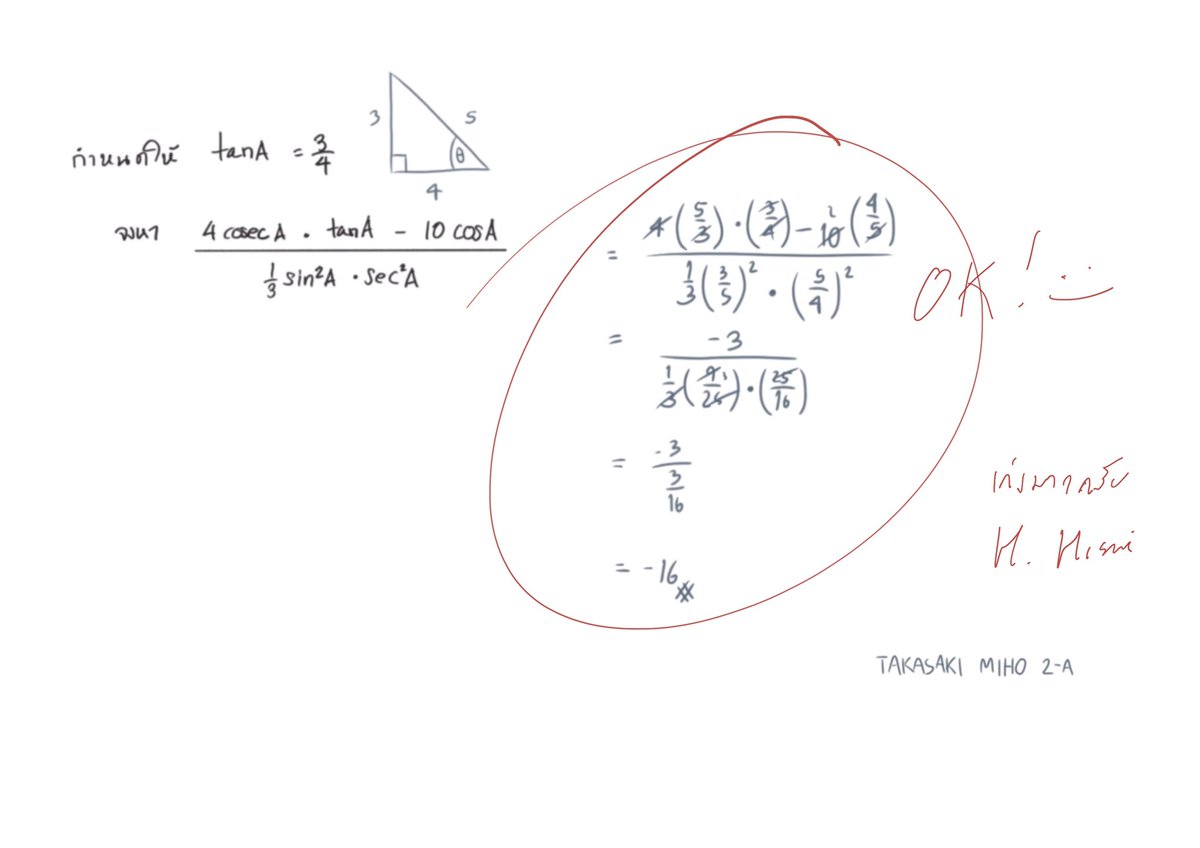 กำหนดให้ tanA = 3/4
3
5
θ
4
จงหา (4 cosec A · tanA - 10 cosA) / (1/3 sin²A · sec²A)
= (4(5/3)·(3/4) - 10 2 (4/5)) / (1/3(3/5)² · (5/4)²)
= -3 / (1/3(9/25)·(25/16))
= -3 / (3/16)
= -16
OK!
เก่งมากครับ
TAKASAKI MIHO 2-A